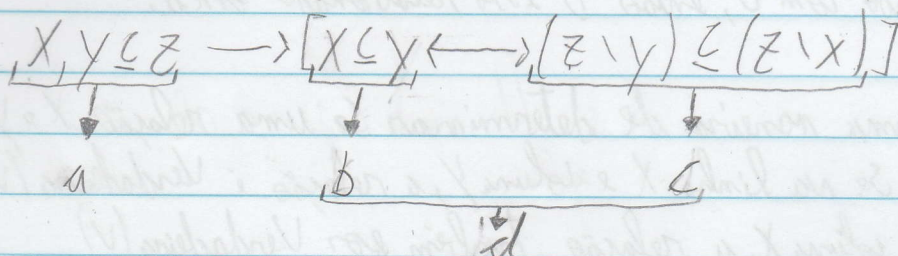 X, Y ⊆ Z → [X ⊆ Y ↔ (Z \ Y) ⊆ (Z \ X)]
a b c
d